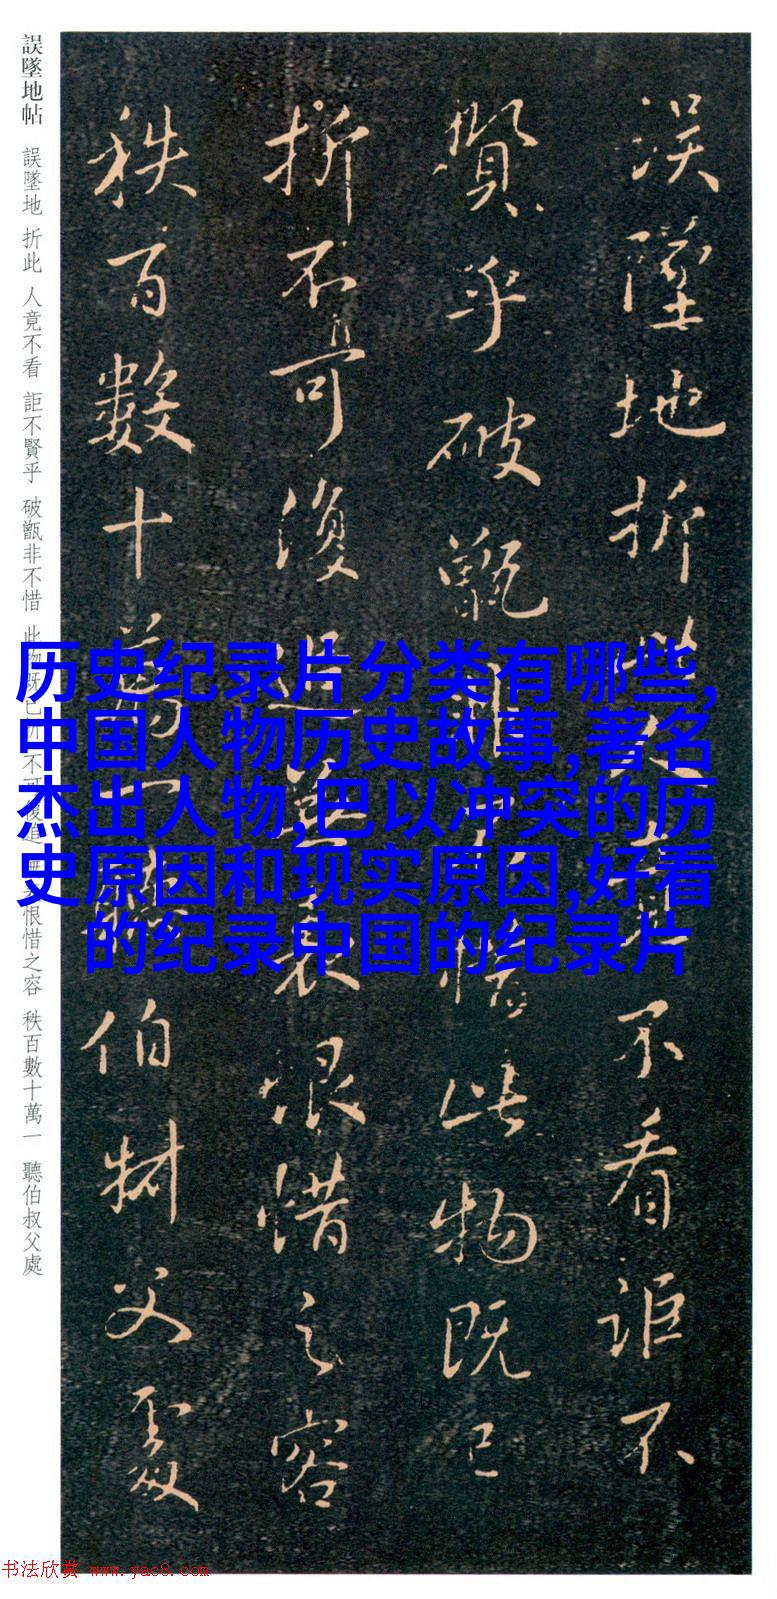 誤墜地折此人竟不看詎不
賢乎破甑非不惜此物既已
折不可復追無恨惜之容
秩百數十萬一聽伯叔父處
誤墜地帖 誤墜地 折此 人竟不看 詎不賢乎 破甑非不惜 此物既已折 不可復追 無恨惜之容 秩百數十萬一 聽伯叔父處
历史纪录片分类有哪些,
中国人物历史故事,著名
杰出人物,巴以冲突的历
史原因和现实原因,好看
的纪录中国的纪录片
书法欣赏 www.yac8.com